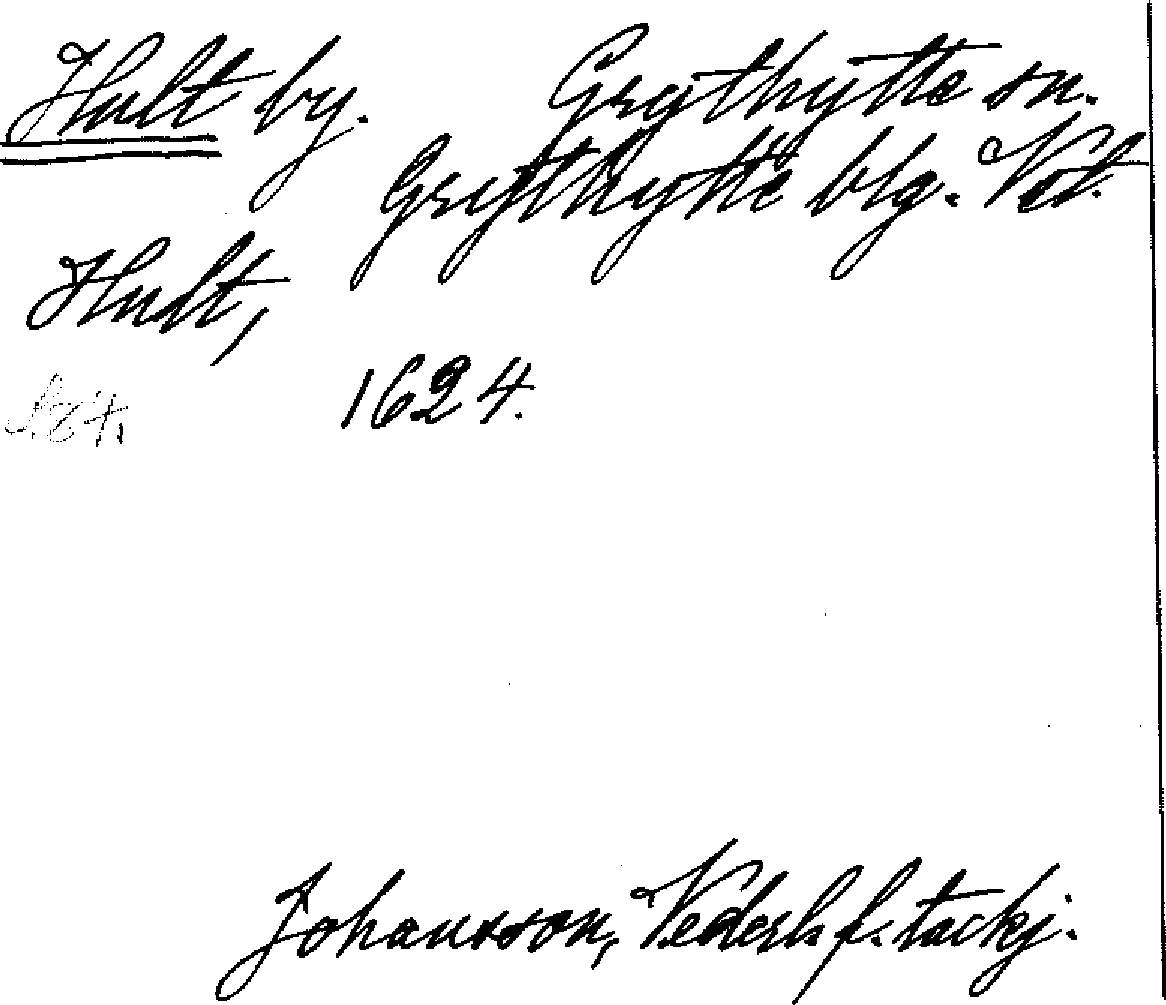 Hult by. Grythytte sn.
Grythytte blg. Vstl.
Hudt,
1624.
Johansson, Vederl. f. tackj.